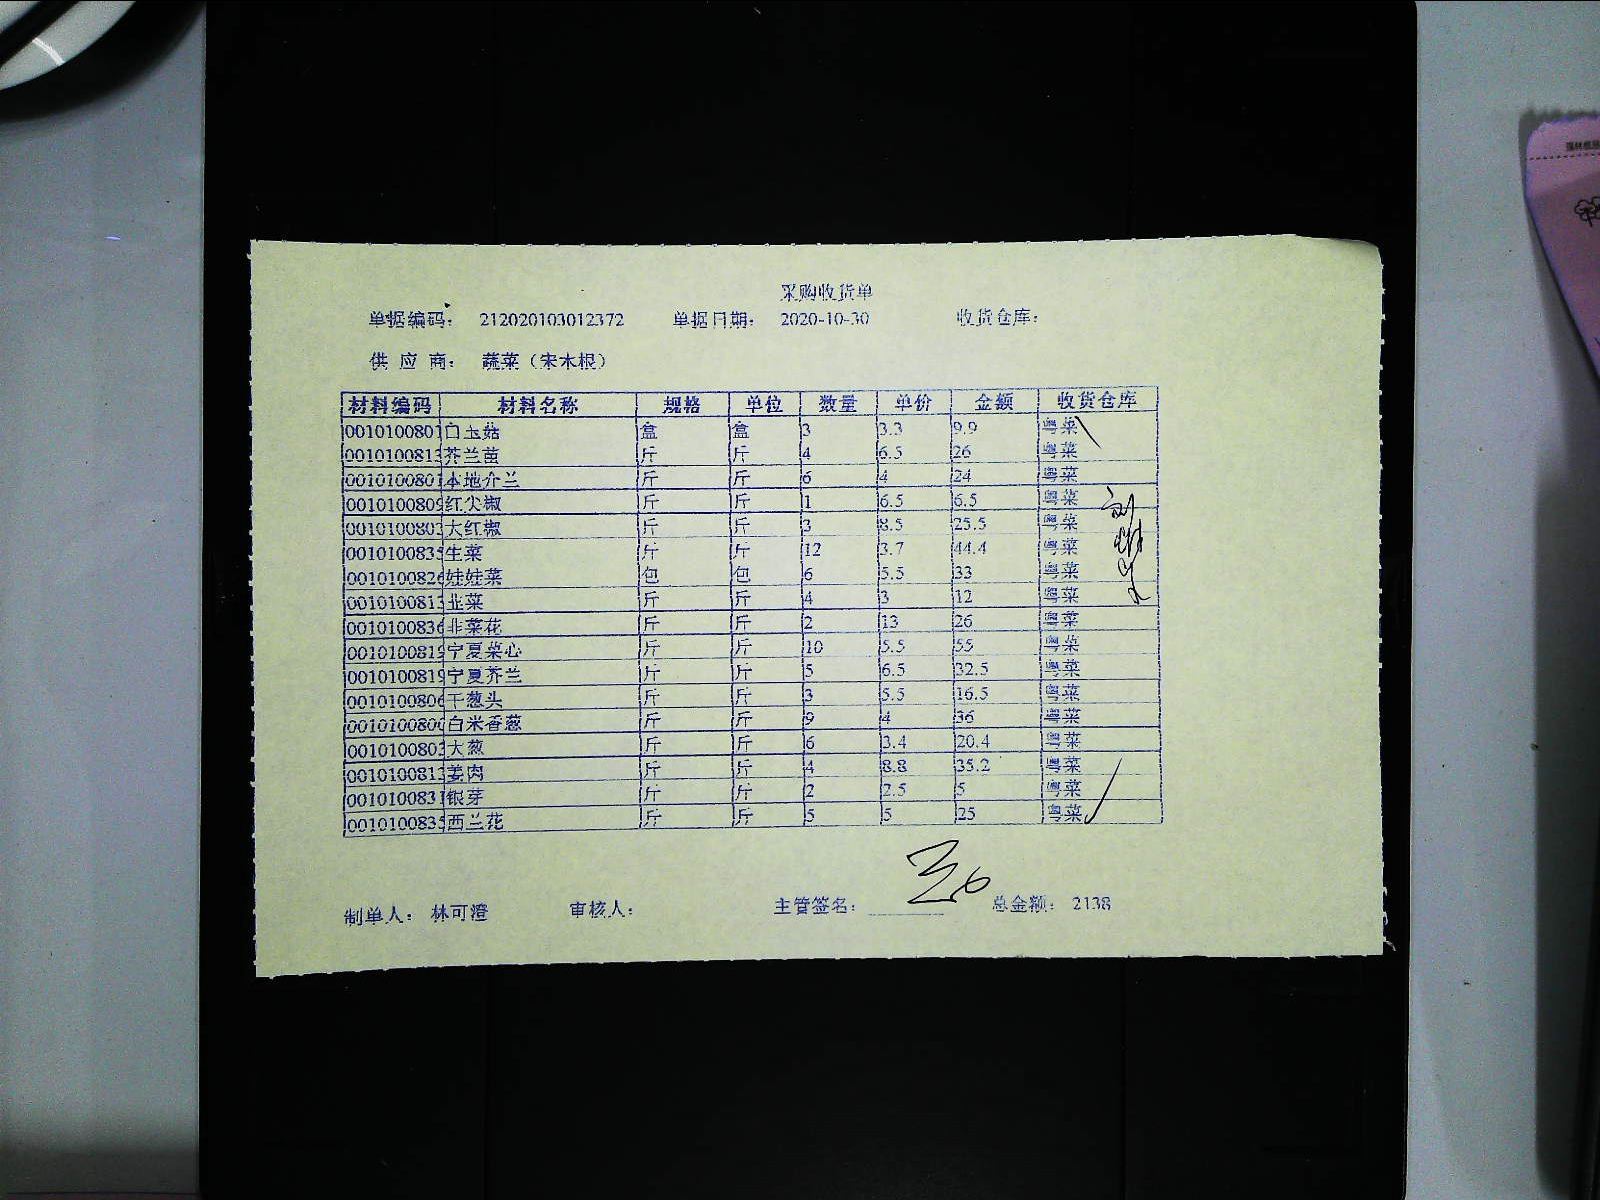 采购收货单
单据编码: 212020103012372 单据日期: 2020-10-30 收货仓库:
供 应 商: 蔬菜（宋木根）
材料编码 材料名称 规格 单位 数量 单价 金额 收货仓库
0010100801 白玉菇 盒 盒 3 3.3 9.9 粤菜
0010100813 芥兰苗 斤 斤 4 6.5 26 粤菜
0010100801 本地介兰 斤 斤 6 4 24 粤菜
0010100809 红尖椒 斤 斤 1 6.5 6.5 粤菜
0010100803 大红椒 斤 斤 3 8.5 25.5 粤菜
0010100835 生菜 斤 斤 12 3.7 44.4 粤菜
0010100826 娃娃菜 包 包 6 5.5 33 粤菜
0010100813 韭菜 斤 斤 4 3 12 粤菜
0010100836 韭菜花 斤 斤 2 13 26 粤菜
0010100819 宁夏菜心 斤 斤 10 5.5 55 粤菜
0010100819 宁夏芥兰 斤 斤 5 6.5 32.5 粤菜
0010100806 干葱头 斤 斤 3 5.5 16.5 粤菜
0010100800 白米香葱 斤 斤 9 4 36 粤菜
0010100803 大葱 斤 斤 6 3.4 20.4 粤菜
0010100813 姜肉 斤 斤 4 8.8 35.2 粤菜
0010100831 银芽 斤 斤 2 2.5 5 粤菜
0010100835 西兰花 斤 斤 5 5 25 粤菜
制单人: 林可澄 审核人: 主管签名: 总金额: 2138